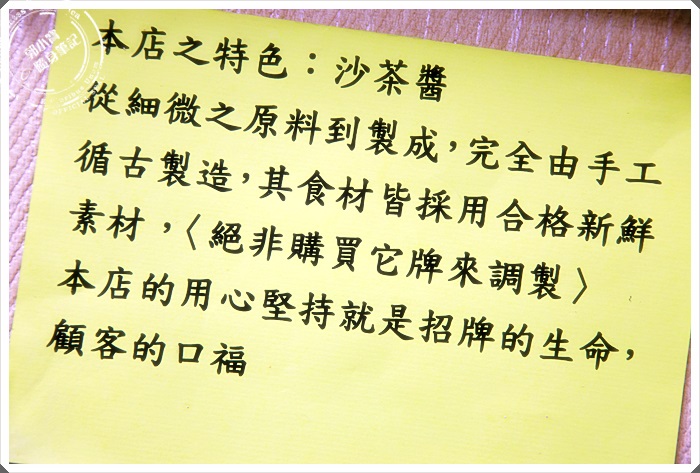 本店之特色：沙茶醬
從細微之原料到製成，完全由手工
循古製造，其食材皆採用合格新鮮
素材，〈絕非購買它牌來調製〉
本店的用心堅持就是招牌的生命，
顧客的口福